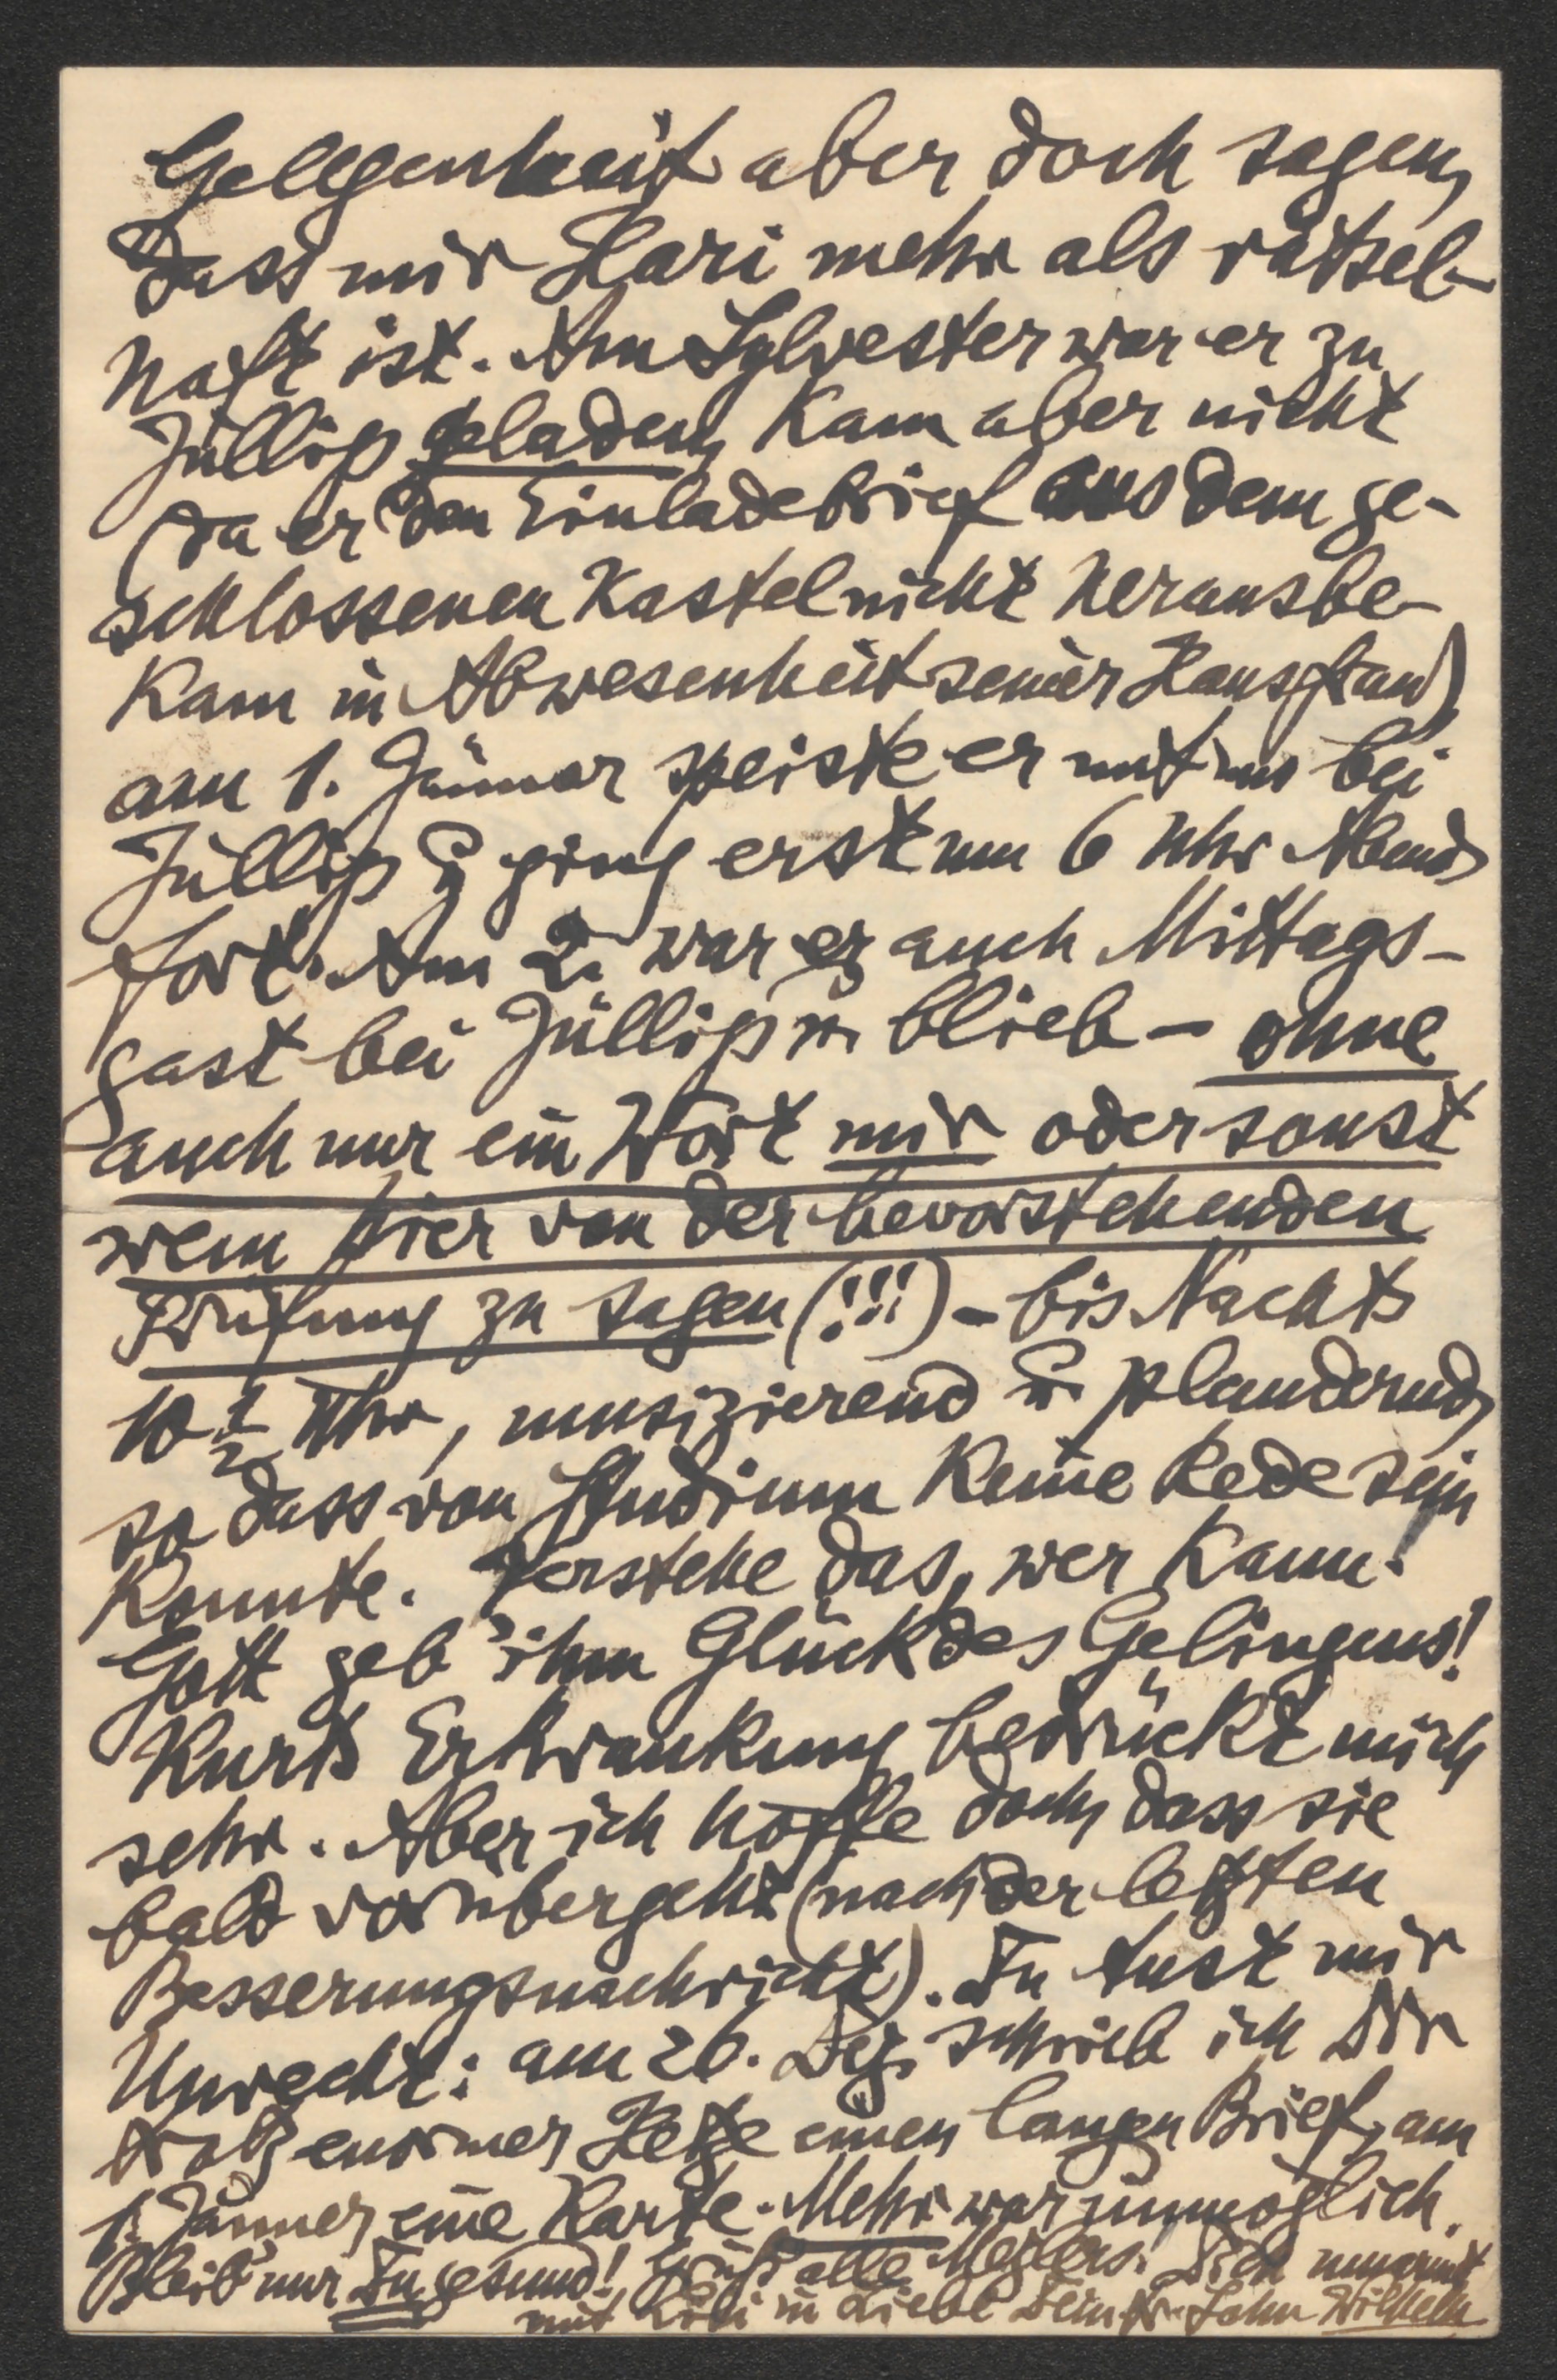 Gelegenheit aber doch sagen,
dass mir Hari mehr als rätsel-
haft ist. Am Sylvester war er zu
Jüllig geladen, kam aber nicht
(da er den Einladebrief aus dem ge-
schlossenen Kastel nicht herausbe-
kam in Abwesenheit seiner Hausfrau)
am 1. Jänner speiste er mit uns bei
Jüllig & ging erst um 6 Uhr Abends
fort. Am 2. war er auch Mittags-
gast bei Jüllig u. blieb – ohne
auch nur ein Wort mir oder sonst
wem hier von der bevorstehenden
Prüfung zu sagen (!!!) – bis Nachts
10 1/2 Uhr, musizierend u. plaudernd,
so dass von Studium keine Rede sein
konnte. Verstehe das, wer kann!
Gott geb' ihm Glück des Gelingens!
Kurts Erkrankung bedrückt mich
sehr. Aber ich hoffe doch, dass sie
bald vorübergeht (nach der letzten
Besserungsnachricht). Du tust mir
Unrecht: am 26. Dez. schrieb ich Dir
trotz enormer Hetze einen langen Brief, am
1. Jänner eine Karte. Mehr war unmöglich.
Bleib' nur Du gesund! Grüß alle Metzlers! Dich umarmt
mit Lili in Liebe Dein tr. Sohn Wilhelm